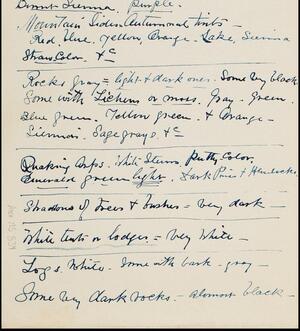 Burnt Sienna, purple -
Mountain Sides Autumnal tints -
Red, blue, Yellow, Orange - Lake, Sienna
Straw Color. + c
Rocks gray = light + dark ones - Some very black
Some with Lichens or moss. Gray - Green.
Blue green. Yellow green. + Orange -
Siennas. Sage grays. + c
Quaking Asps. White Stems. Putty Color.
Emerald green light. Dark Pines + Hemlocks
Shadows of trees + bushes - very dark -
White tents or lodges = very White -
Logs. White. Some with bark - gray -
Some very dark rocks - almost black -